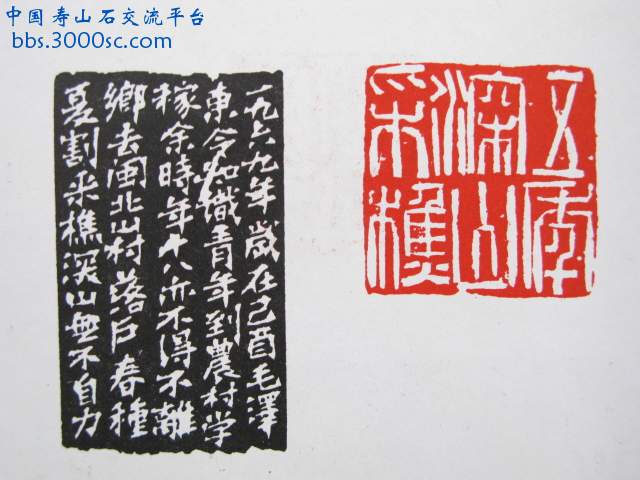 中国寿山石交流平台
bbs.3000sc.com
五年
深山
采樵
一九六九年歲在己酉毛澤
東令知識青年到農村学
稼余時年十八亦不得不離
鄉去闽北山村落户春種
夏割采樵深山無不自力